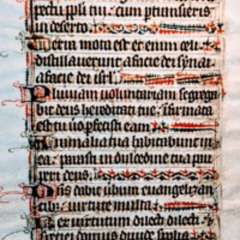 pectu ppli tui : cum ptransieris
in deserto.
Terra mota est et enim celi
distillaverunt a facie dei synai
a facie dei isrl.
Pluviam voluntariam segrega
bis deus hereditati tue : &
est tu vo pfecisti eam
Animalia tua habitabunt in
ea : parasti in dulcedine tua pau
peri deus.
Dns dabit verbum euangelizan
tibus virtute multa
Rex virtutum dilecti dilecti : &
speciei domus dividere spolia